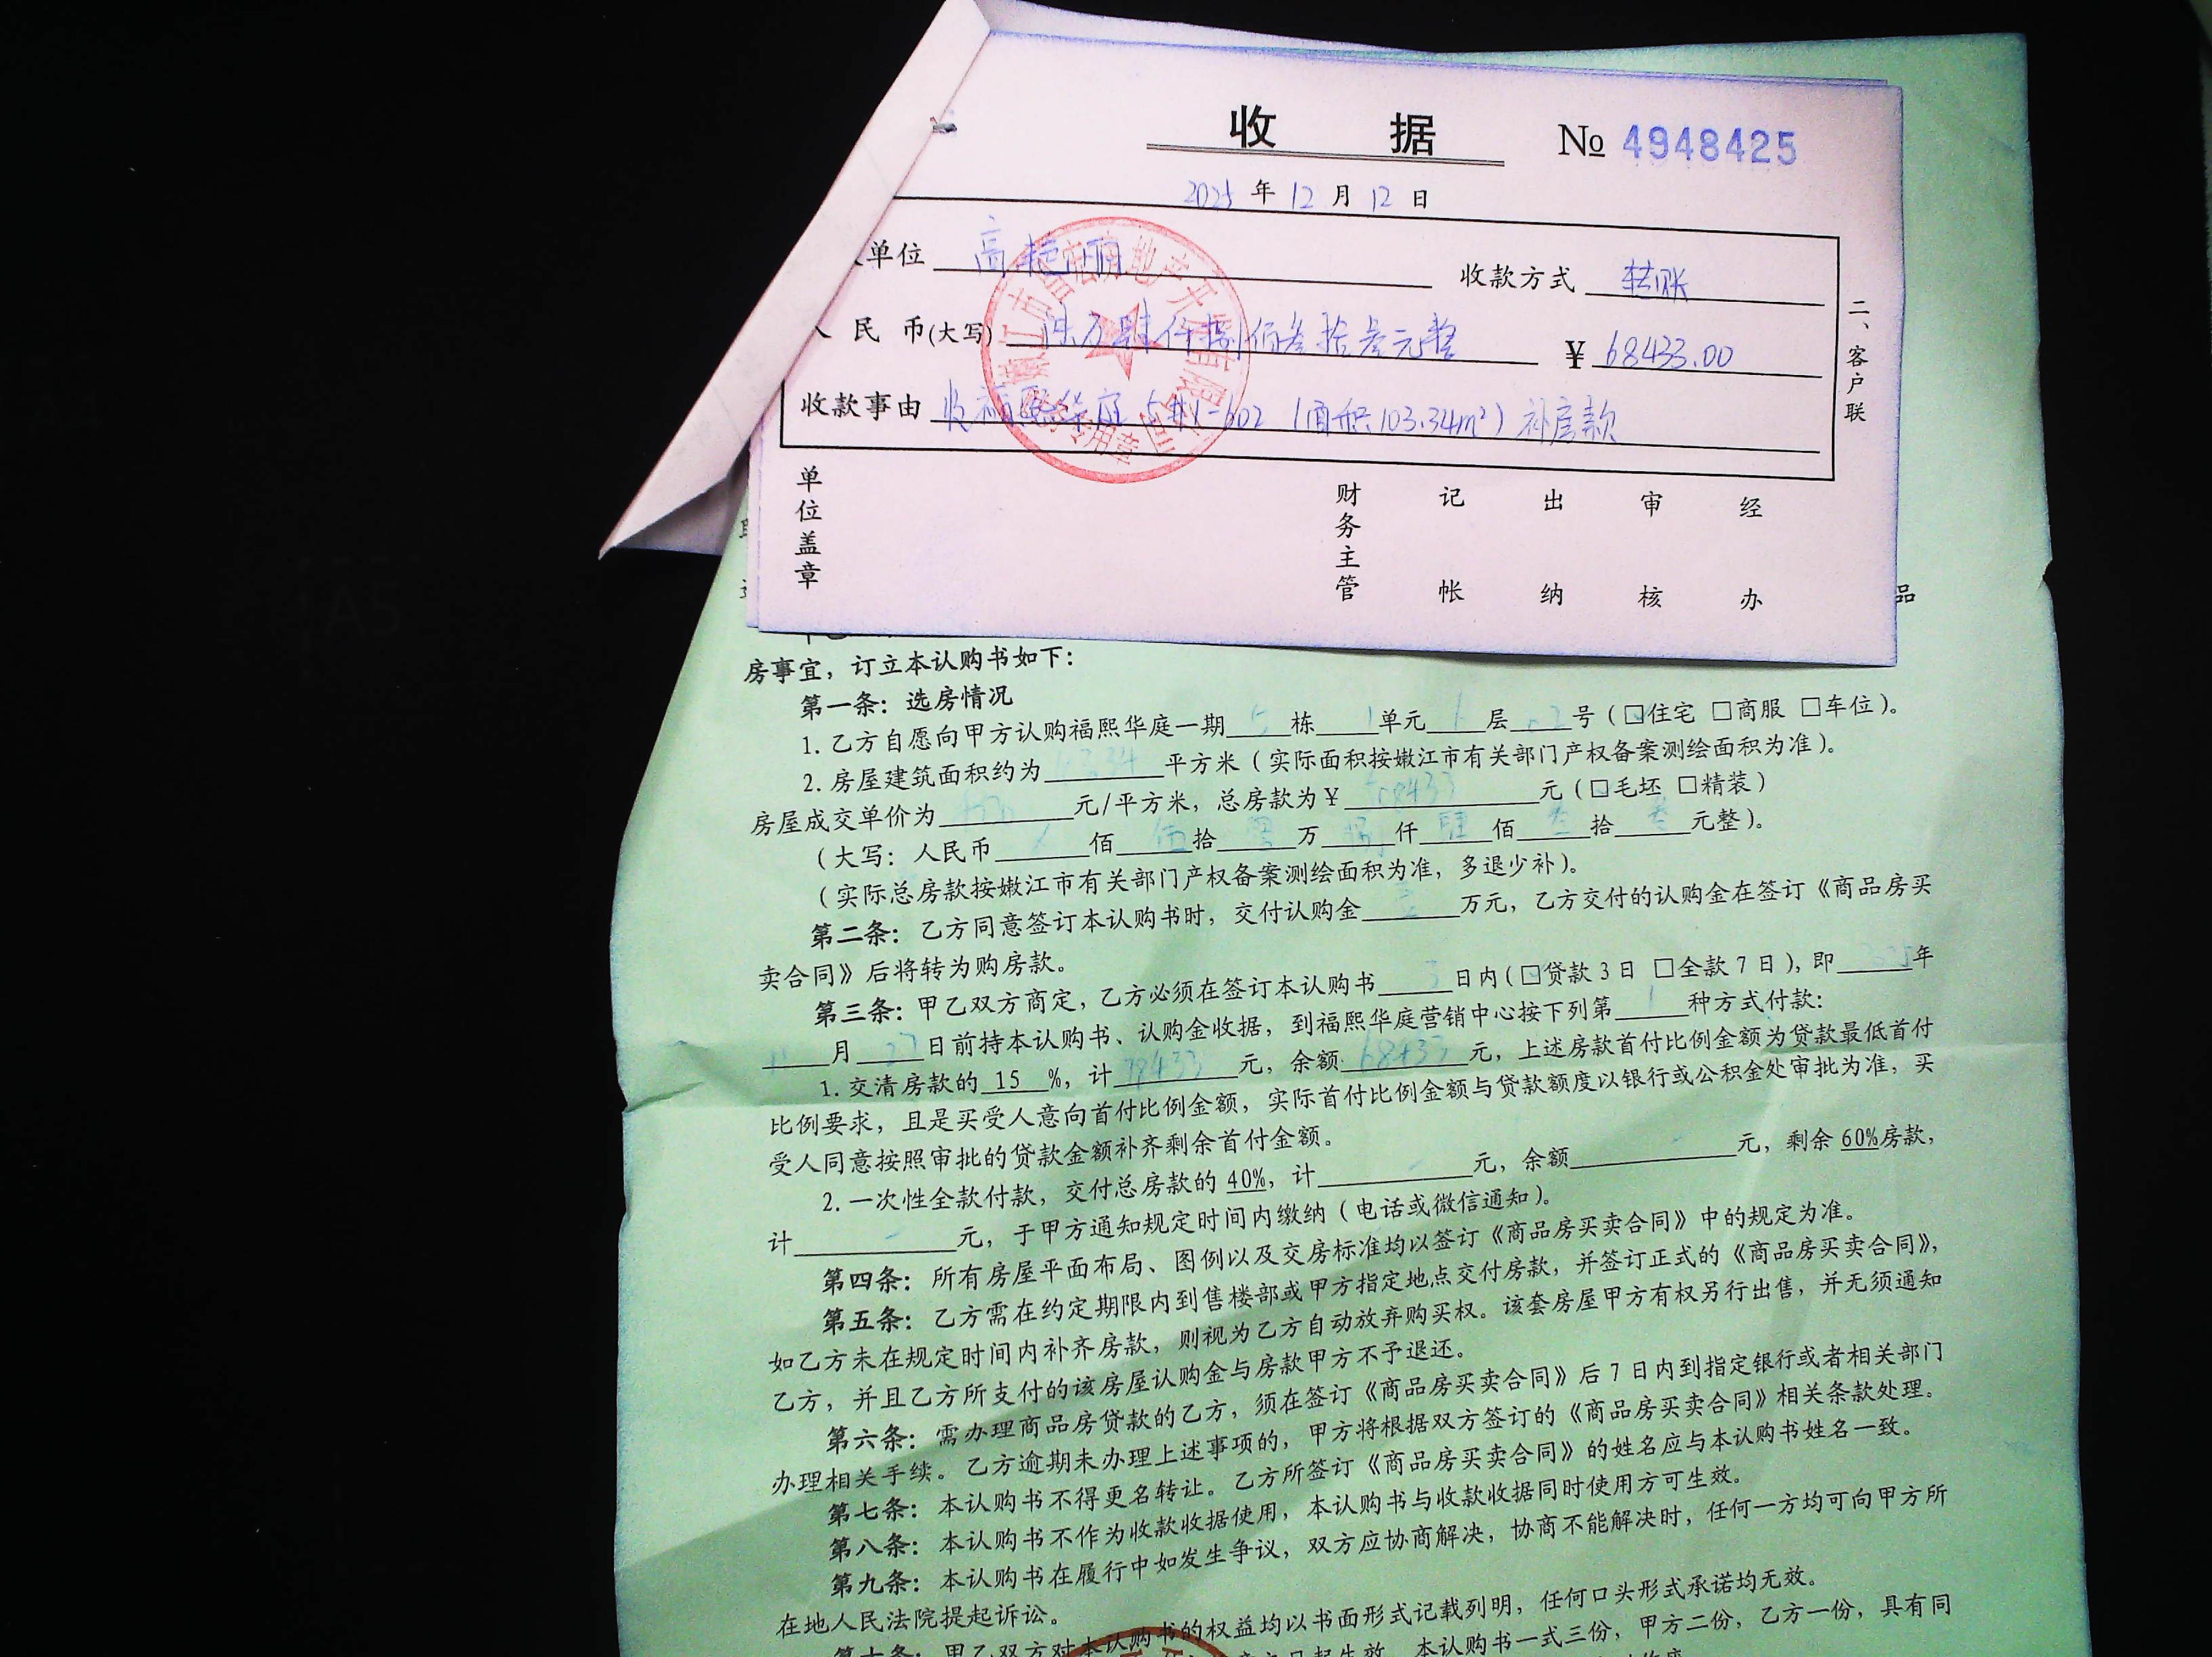 收 据 № 4948425
2025 年 12 月 12 日
单位 高艳丽 收款方式 转账
人 民 币(大写) 陆万肆仟捌佰叁拾叁元整 ¥ 68433.00
收款事由 收福熙华庭 5#1-602 (面积103.34m²) 补房款
二、客户联
单位盖章 财务主管 记帐 出纳 审核 经办
品
房事宜，订立本认购书如下：
第一条：选房情况
1.乙方自愿向甲方认购福熙华庭一期 5 栋 1 单元 6 层 02 号（□住宅 □商服 □车位）。
2.房屋建筑面积约为 103.34 平方米（实际面积按嫩江市有关部门产权备案测绘面积为准）。
房屋成交单价为 元/平方米，总房款为¥ 508433 元（□毛坯 □精装）
（大写：人民币 佰 伍 拾 万 捌 仟 肆 佰 叁 拾 叁 元整）。
（实际总房款按嫩江市有关部门产权备案测绘面积为准，多退少补）。
第二条：乙方同意签订本认购书时，交付认购金 万元，乙方交付的认购金在签订《商品房买
卖合同》后将转为购房款。
第三条：甲乙双方商定，乙方必须在签订本认购书 3 日内（□贷款 3 日 □全款 7 日），即 2025 年
月 27 日前持本认购书、认购金收据，到福熙华庭营销中心按下列第 1 种方式付款：
1.交清房款的 15 %，计 78433 元，余额 68433 元，上述房款首付比例金额为贷款最低首付
比例要求，且是买受人意向首付比例金额，实际首付比例金额与贷款额度以银行或公积金处审批为准，买
受人同意按照审批的贷款金额补齐剩余首付金额。
2.一次性全款付款，交付总房款的 40%，计 元，余额 元，剩余 60%房款，
计 元，于甲方通知规定时间内缴纳（电话或微信通知）。
第四条：所有房屋平面布局、图例以及交房标准均以签订《商品房买卖合同》中的规定为准。
第五条：乙方需在约定期限内到售楼部或甲方指定地点交付房款，并签订正式的《商品房买卖合同》，
如乙方未在规定时间内补齐房款，则视为乙方自动放弃购买权。该套房屋甲方有权另行出售，并无须通知
乙方，并且乙方所支付的该房屋认购金与房款甲方不予退还。
第六条：需办理商品房贷款的乙方，须在签订《商品房买卖合同》后 7 日内到指定银行或者相关部门
办理相关手续。乙方逾期未办理上述事项的，甲方将根据双方签订的《商品房买卖合同》相关条款处理。
第七条：本认购书不得更名转让。乙方所签订《商品房买卖合同》的姓名应与本认购书姓名一致。
第八条：本认购书不作为收款收据使用，本认购书与收款收据同时使用方可生效。
第九条：本认购书在履行中如发生争议，双方应协商解决，协商不能解决时，任何一方均可向甲方所
在地人民法院提起诉讼。
第十条：甲乙双方对本认购书的权益均以书面形式记载列明，任何口头形式承诺均无效。
之日起生效，本认购书一式三份，甲方二份，乙方一份，具有同